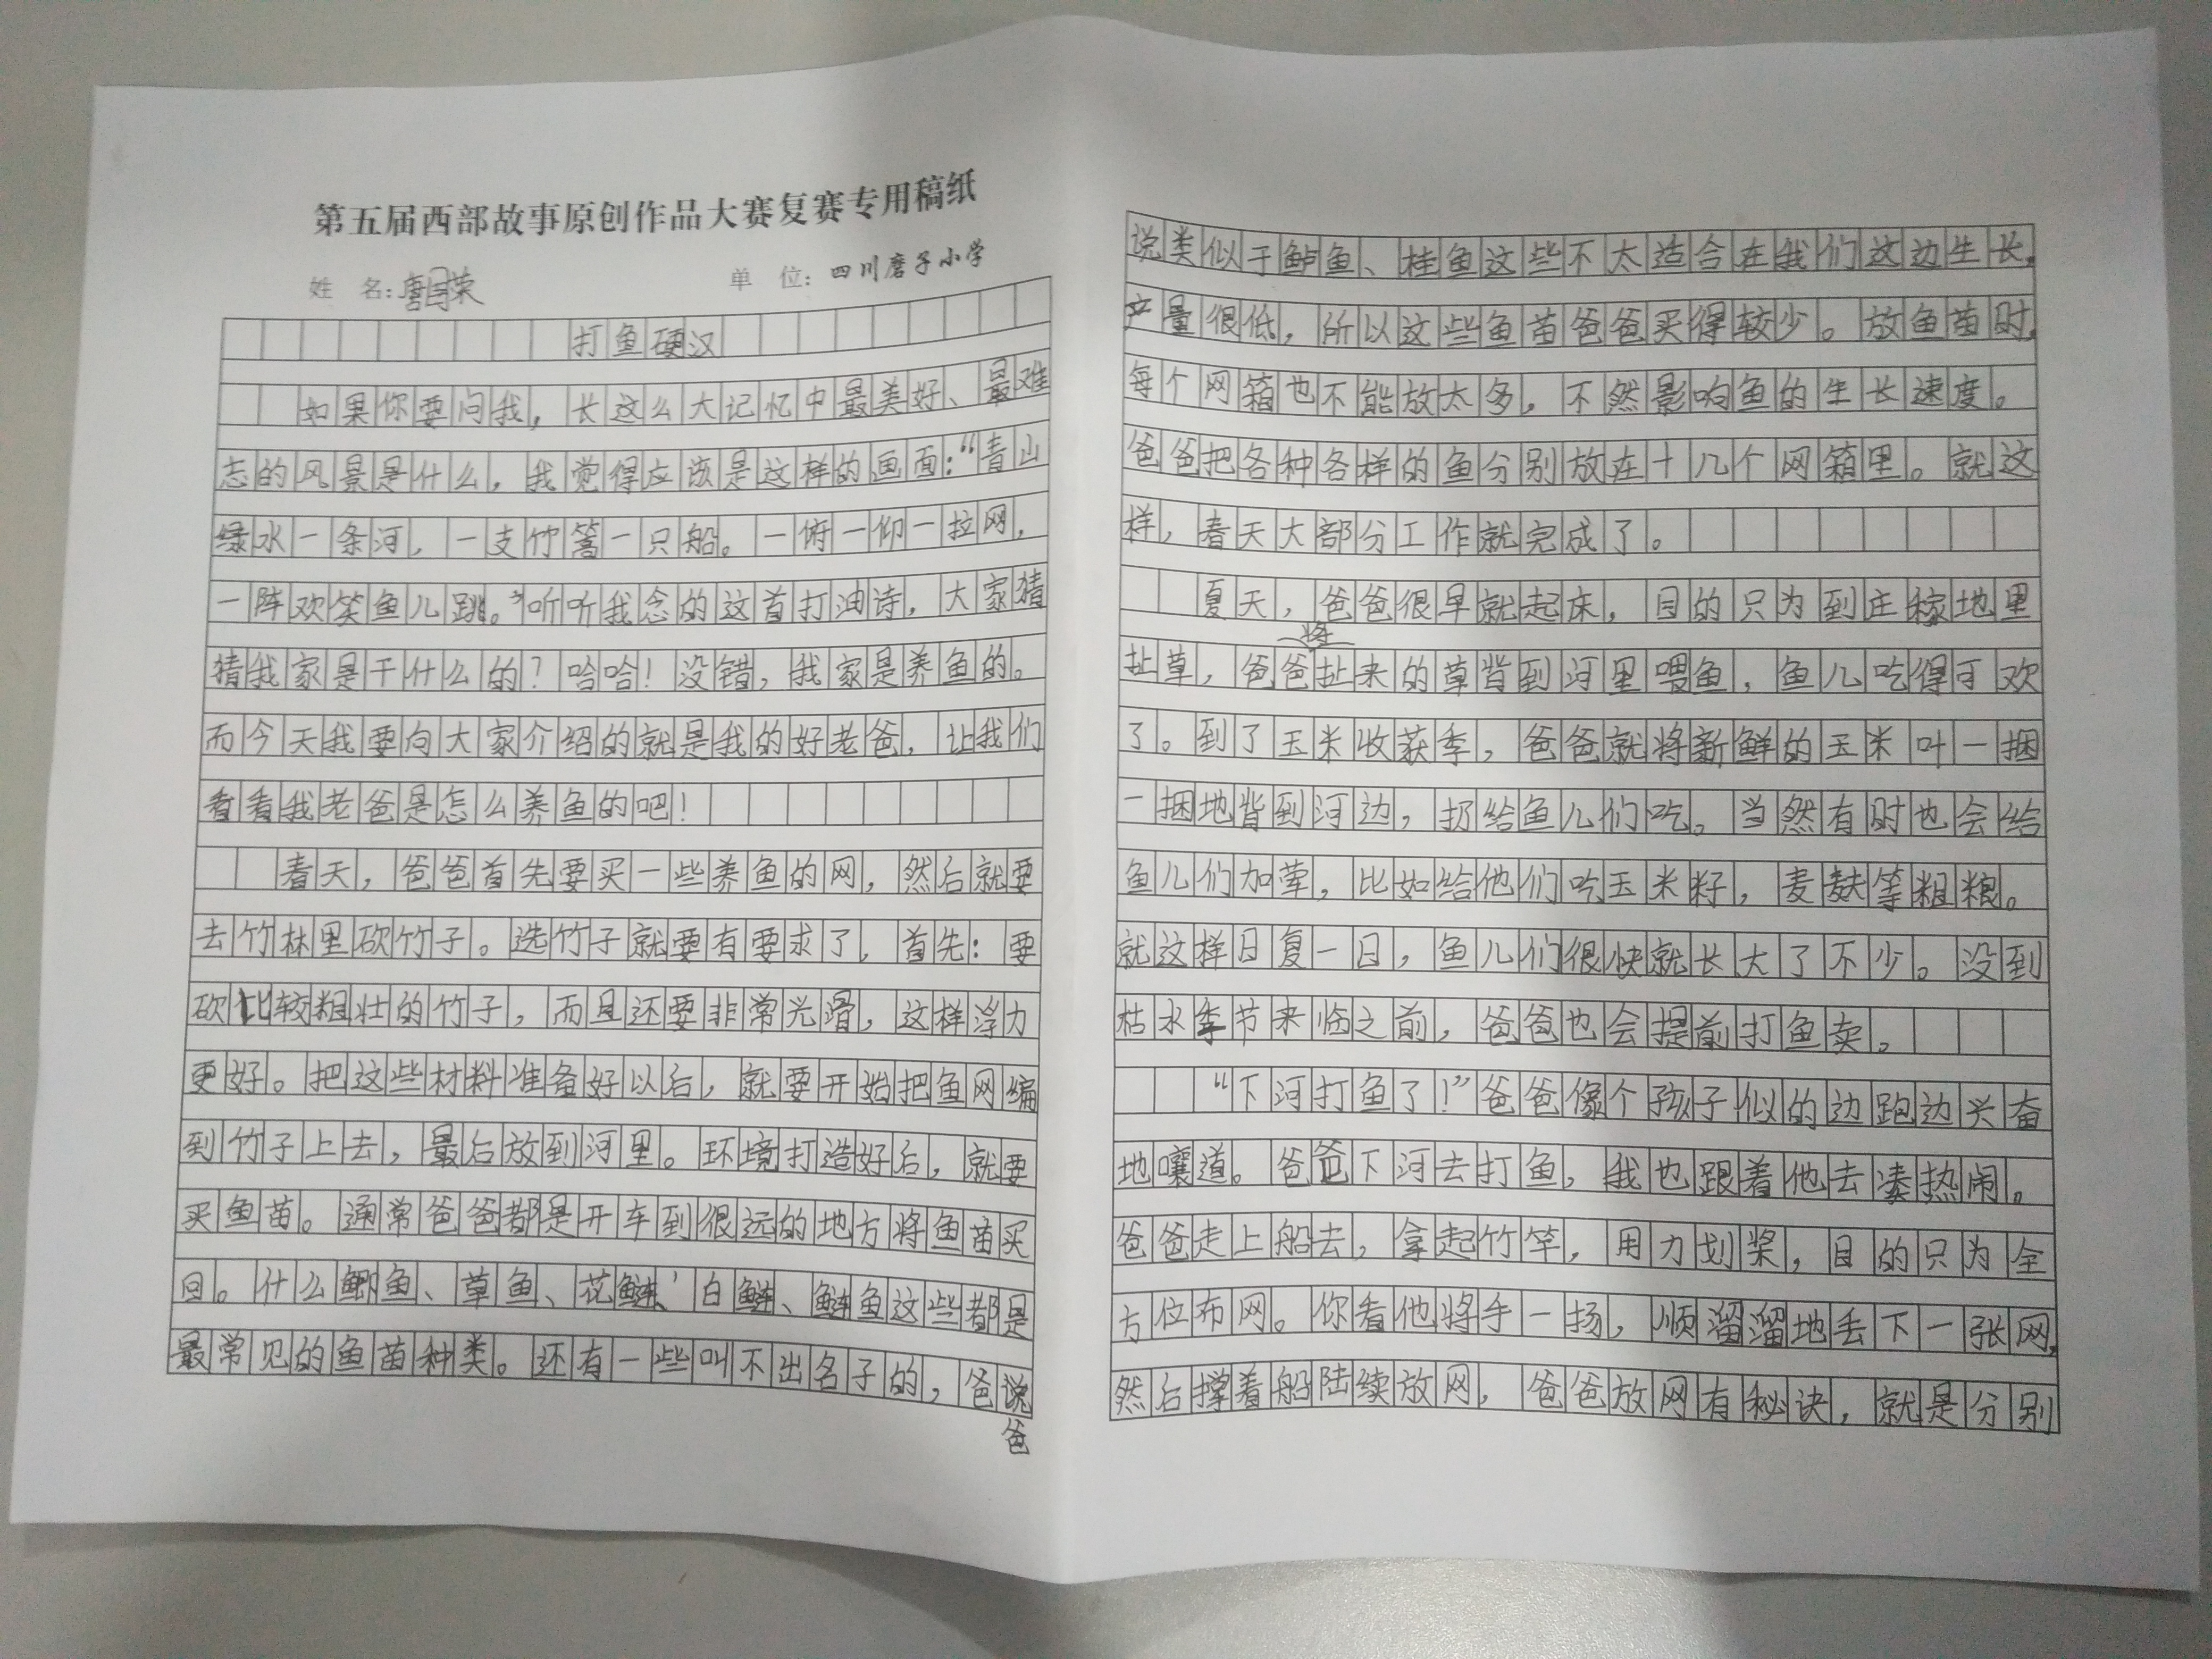 第五届西部故事原创作品大赛复赛专用稿纸
姓 名:唐国荣 单 位:四川磨子小学
打鱼硬汉
如果你要问我，长这么大记忆中最美好、最难
忘的风景是什么，我觉得应该是这样的画面:“青山
绿水一条河，一支竹篙一只船。一俯一仰一拉网，
一阵欢笑鱼儿跳。”听听我念的这首打油诗，大家猜
猜我家是干什么的？哈哈！没错，我家是养鱼的。
而今天我要向大家介绍的就是我的好老爸，让我们
看看我老爸是怎么养鱼的吧！
春天，爸爸首先要买一些养鱼的网，然后就要
去竹林里砍竹子。选竹子就要有要求了，首先：要
砍比较粗壮的竹子，而且还要非常光滑，这样浮力
更好。把这些材料准备好以后，就要开始把鱼网编
到竹子上去，最后放到河里。环境打造好后，就要
买鱼苗。通常爸爸都是开车到很远的地方将鱼苗买
回。什么鲫鱼、草鱼、花鲢、白鲢、鲢鱼这些都是
最常见的鱼苗种类。还有一些叫不出名子的，爸爸说
说类似于鲈鱼、桂鱼这些不太适合在我们这边生长，
产量很低，所以这些鱼苗爸爸买得较少。放鱼苗时，
每个网箱也不能放太多，不然影响鱼的生长速度。
爸爸把各种各样的鱼分别放在十几个网箱里。就这
样，春天大部分工作就完成了。
夏天，爸爸很早就起床，目的只为到庄稼地里
扯草，爸爸将扯来的草背到河里喂鱼，鱼儿吃得可欢
了。到了玉米收获季，爸爸就将新鲜的玉米叶一捆
一捆地背到河边，扔给鱼儿们吃。当然有时也会给
鱼儿们加荤，比如给他们吃玉米籽，麦麸等粗粮。
就这样日复一日，鱼儿们很快就长大了不少。没到
枯水季节来临之前，爸爸也会提前打鱼卖。
“下河打鱼了！”爸爸像个孩子似的边跑边兴奋
地嚷道。爸爸下河去打鱼，我也跟着他去凑热闹。
爸爸走上船去，拿起竹竿，用力划桨，目的只为全
方位布网。你看他将手一扬，顺溜溜地丢下一张网，
然后撑着船陆续放网，爸爸放网有秘诀，就是分别